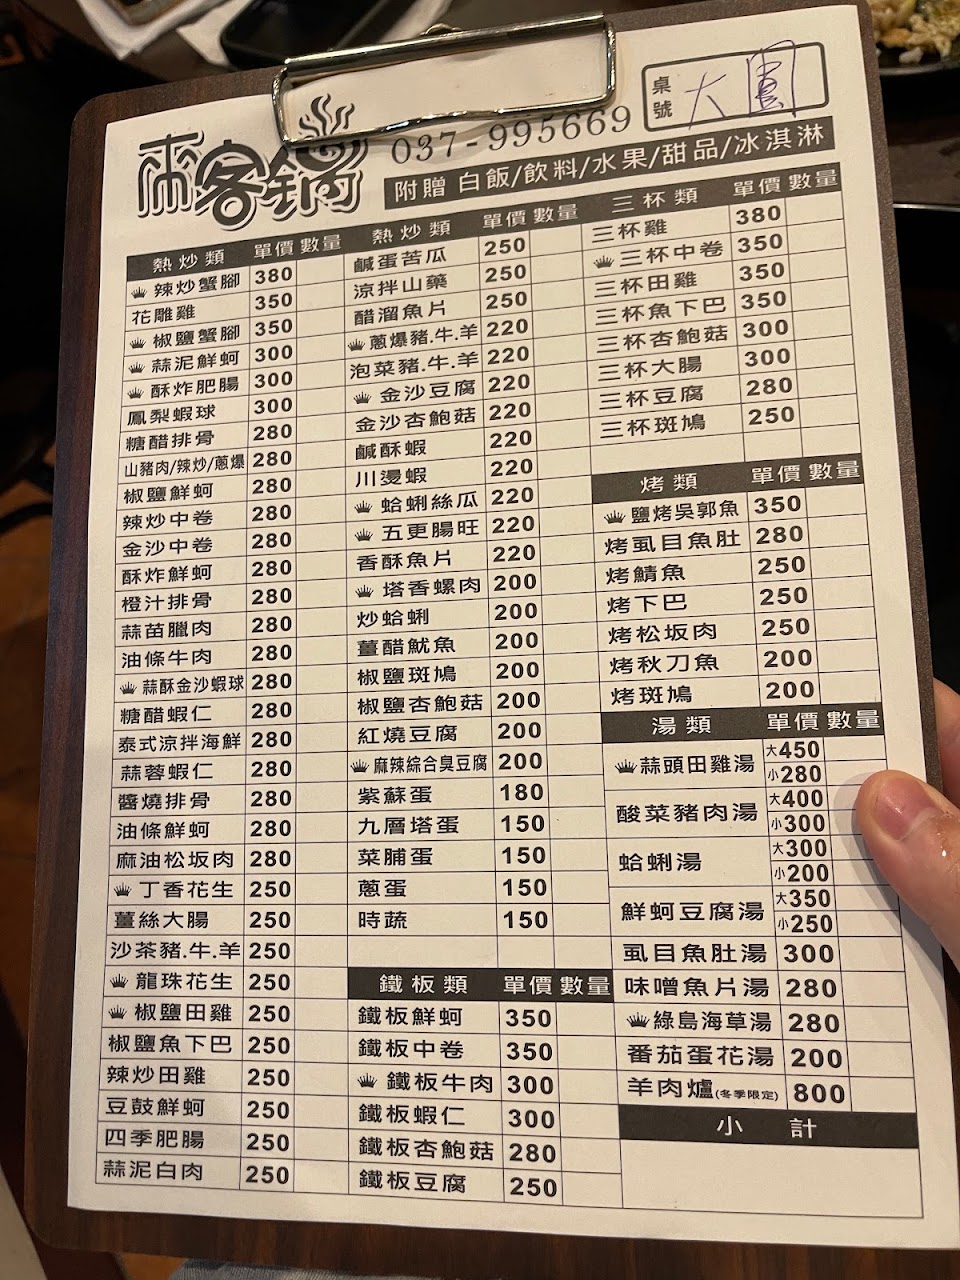 來客鍋
037-995669
桌號 大圓
附贈 白飯/飲料/水果/甜品/冰淇淋
熱炒類 單價 數量
辣炒蟹腳 380
花雕雞 350
椒鹽蟹腳 350
蒜泥鮮蚵 300
酥炸肥腸 300
鳳梨蝦球 300
糖醋排骨 280
山豬肉/辣炒/蔥爆 280
椒鹽鮮蚵 280
辣炒中卷 280
金沙中卷 280
酥炸鮮蚵 280
橙汁排骨 280
蒜苗臘肉 280
油條牛肉 280
蒜酥金沙蝦球 280
糖醋蝦仁 280
泰式涼拌海鮮 280
蒜蓉蝦仁 280
醬燒排骨 280
油條鮮蚵 280
麻油松坂肉 280
丁香花生 250
薑絲大腸 250
沙茶豬.牛.羊 250
龍珠花生 250
椒鹽田雞 250
椒鹽魚下巴 250
辣炒田雞 250
豆鼓鮮蚵 250
四季肥腸 250
蒜泥白肉 250
熱炒類 單價 數量
鹹蛋苦瓜 250
涼拌山藥 250
醋溜魚片 250
蔥爆豬.牛.羊 220
泡菜豬.牛.羊 220
金沙豆腐 220
金沙杏鮑菇 220
鹹酥蝦 220
川燙蝦 220
蛤蜊絲瓜 220
五更腸旺 220
香酥魚片 220
塔香螺肉 200
炒蛤蜊 200
薑醋魷魚 200
椒鹽斑鳩 200
椒鹽杏鮑菇 200
紅燒豆腐 200
麻辣綜合臭豆腐 200
紫蘇蛋 180
九層塔蛋 150
菜脯蛋 150
蔥蛋 150
時蔬 150
鐵板類 單價 數量
鐵板鮮蚵 350
鐵板中卷 350
鐵板牛肉 300
鐵板蝦仁 300
鐵板杏鮑菇 280
鐵板豆腐 250
三杯類 單價 數量
三杯雞 380
三杯中卷 350
三杯田雞 350
三杯魚下巴 350
三杯杏鮑菇 300
三杯大腸 300
三杯豆腐 280
三杯斑鳩 250
烤類 單價 數量
鹽烤吳郭魚 350
烤虱目魚肚 280
烤鯖魚 250
烤下巴 250
烤松坂肉 250
烤秋刀魚 200
烤斑鳩 200
湯類 單價 數量
蒜頭田雞湯 大450
小280
酸菜豬肉湯 大400
小300
蛤蜊湯 大300
小200
鮮蚵豆腐湯 大350
小250
虱目魚肚湯 300
味噌魚片湯 280
綠島海草湯 280
番茄蛋花湯 200
羊肉爐(冬季限定) 800
小計